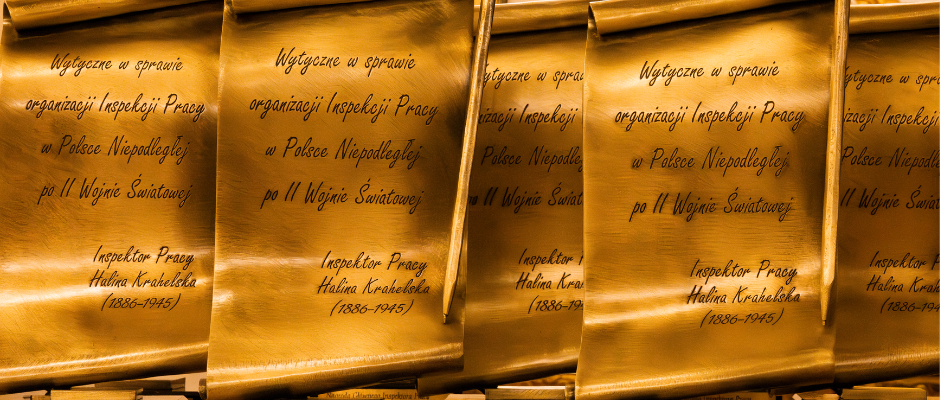 Wytyczne w sprawie
organizacji Inspekcji Pracy
w Polsce Niepodległej
po II Wojnie Światowej
Inspektor Pracy
Halina Krahelska
(1886-1945)
Wytyczne w sprawie
organizacji Inspekcji Pracy
w Polsce Niepodległej
po II Wojnie Światowej
Inspektor Pracy
Halina Krahelska
(1886-1945)
w
Inspekcji
Polsce
II Wojnie
Inspektor
Halina
Wytyczne w sprawie
organizacji Inspekcji Pracy
w Polsce Niepodległej
po II Wojnie Światowej
Inspektor Pracy
Halina Krahelska
(1886-1945)
w
Inspekcji
Polsce
II Wojnie
Inspektor
Halina